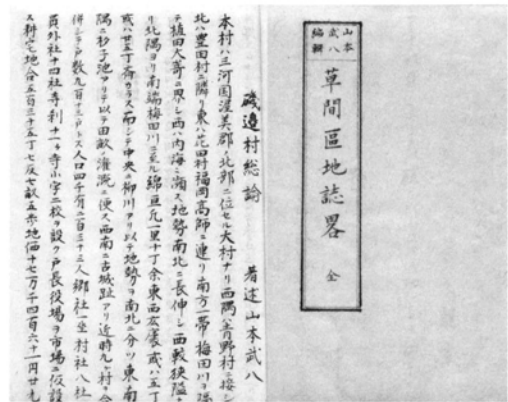 山本
武八
編輯
草間區地誌畧 全
磯邉村総論 著述山本武八
本村ハ三河国渥美郡ノ北部ニ位セル大村ナリ西隅ハ青野村ニ接シ
北ハ豊田村ニ隣リ東ハ花田村福岡高師ニ連リ南方一帯梅田川ヲ隔
テ植田大ニ界シ西ハ内海ニ瀕ス地勢南北ニ長伸シ西較狹隘
リ北隅ヨリ南端梅田川ニ至ル綿亘凡一里十丁余東西広袤或ハ五丁
或ハ廿五丁斉カラス而シテ中央ニ柳川アリ以テ地勢ヲ南北ニ分ツ東南
隅ニ杉子池アリテ以テ田畝ノ灌漑ニ便ス西南ニ古城趾アリ近時九ケ村ヲ合
併シテ戸数九百十三戸トス人口四千有二百三十三人郷社一座村社八社
員外社十四社寺刹十一ケ寺小学二校ヲ設ク戸長役場ヲ市場ニ仮設
ス耕宅地合五百三十五丁七反七畝五歩地価十七万千四百六十一円廿九